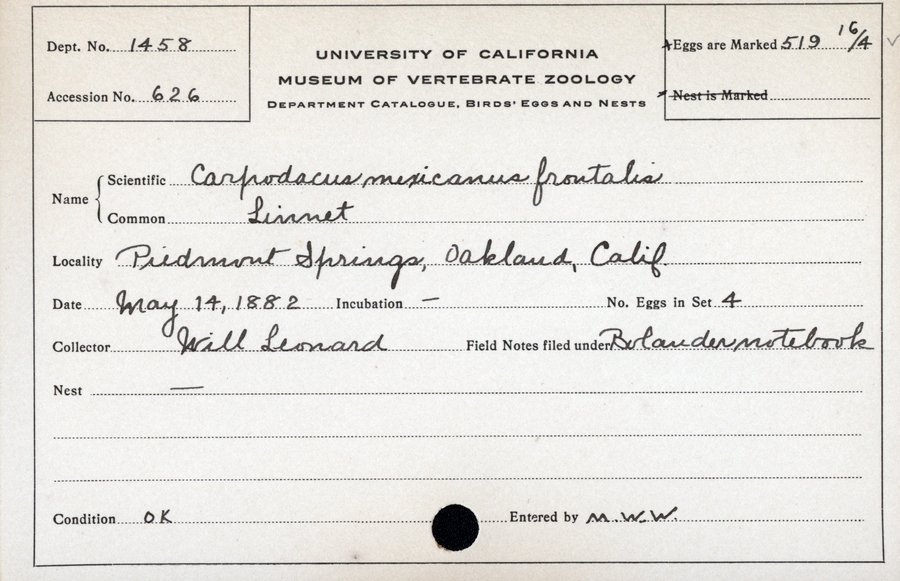 Dept. No. 1458
Accession No. 626
UNIVERSITY OF CALIFORNIA
MUSEUM OF VERTEBRATE ZOOLOGY
DEPARTMENT CATALOGUE, BIRDS' EGGS AND NESTS
Eggs are Marked 519 16/4
Nest is Marked
Name
Scientific Carpodacus mexicanus frontalis
Common Linnet
Locality Piedmont Springs, Oakland, Calif
Date May 14, 1882 Incubation — No. Eggs in Set 4
Collector Will Leonard Field Notes filed under Bolander notebook
Nest —
Condition OK Entered by M.W.W.